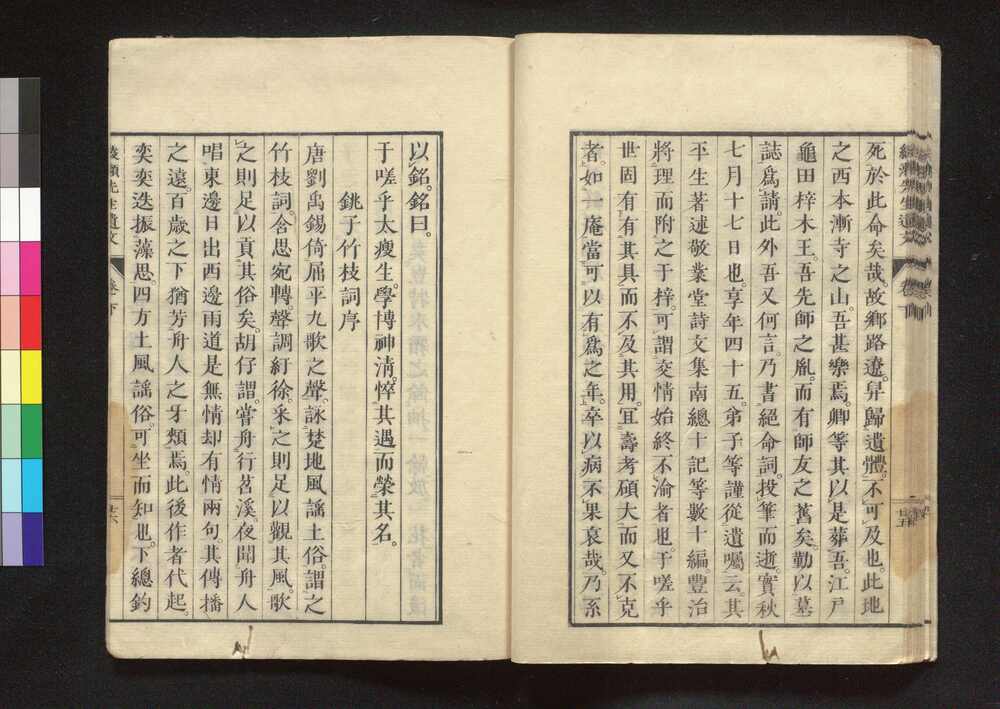 死於此命矣哉。故鄉路遼。舁歸遺體。不可及也。此地
之西本漸寺之山。吾甚樂焉。卿等其以是葬吾。江戸
龜田梓木王。吾先師之胤。而有師友之舊矣。勤以墓
誌爲請。此外吾又何言。乃書絕命詞。投筆而逝。實秋
七月十七日也。享年四十五。弟子等謹從遺囑云。其
平生著述敬業堂詩文集南總十記等數十編。豐治
將理而附之于梓。可謂交情始終不渝者也。于嗟乎
世固有有其具而不及其用。宜壽考碩大而又不克
者。如 庵當可以有爲之年。卒以病不果哀哉。乃系
廿五
以銘。銘曰。
于嗟乎太瘦生。學博神淸。悴其遇而榮其名。
銚子竹枝詞序
唐劉禹錫倚屈平九歌之聲。詠楚地風謠土俗。謂之
竹枝詞。含思宛轉聲調紆徐。采之則足以觀其風。歌
之則足以貢其俗矣。胡仔謂。嘗舟行苕溪。夜聞舟人
唱東邊日出西邊雨道是無情却有情兩句。其傳播
之遠。百歲之下猶芳舟人之牙頰焉。此後作者代起。
奕奕迭振藻思。四方土風謠俗。可坐而知也。下總釣
綾瀨先生遺文 卷下 廿六